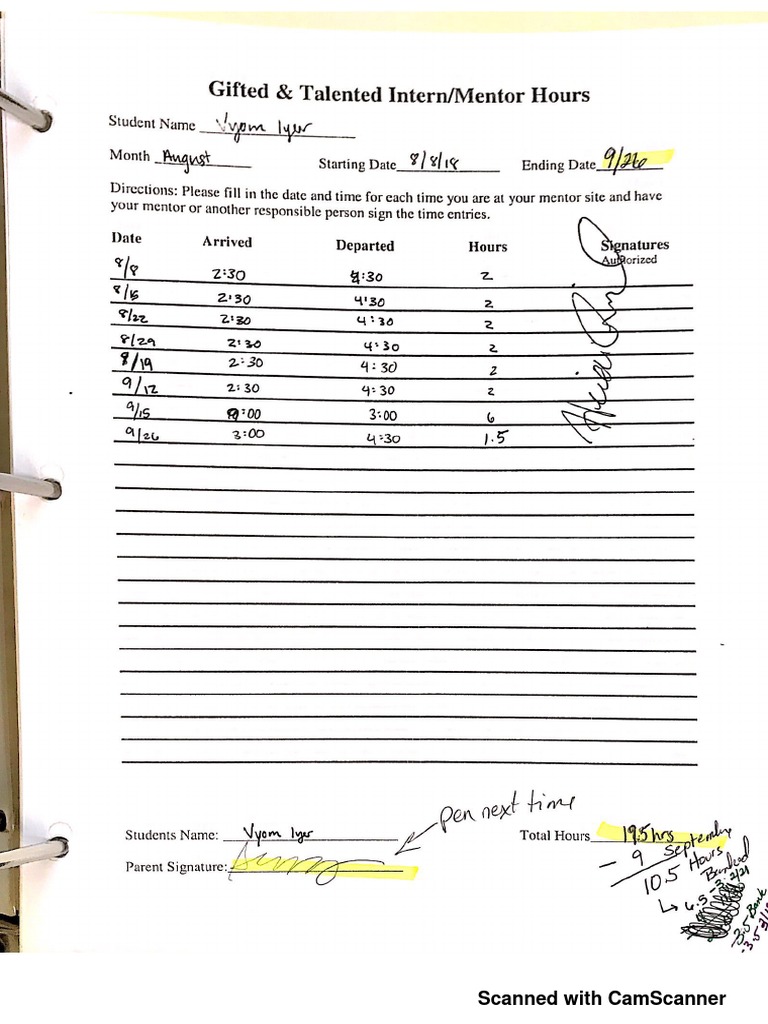 Gifted & Talented Intern/Mentor Hours
Student Name Vyom Iyer
Month August Starting Date 8/8/18 Ending Date 9/26
Directions: Please fill in the date and time for each time you are at your mentor site and have
your mentor or another responsible person sign the time entries.
Date Arrived Departed Hours Signatures
Authorized
8/8 2:30 4:30 2
8/15 2:30 4:30 2
8/22 2:30 4:30 2
8/29 2:30 4:30 2
8/19 2:30 4:30 2
9/12 2:30 4:30 2
9/15 9:00 3:00 6
9/26 3:00 4:30 1.5
pen next time
Students Name: Vyom Iyer Total Hours 19.5 hrs
- 9 September Hours
Parent Signature:
10.5 Banked
↳ 6.5
3.5 Bank
Scanned with CamScanner